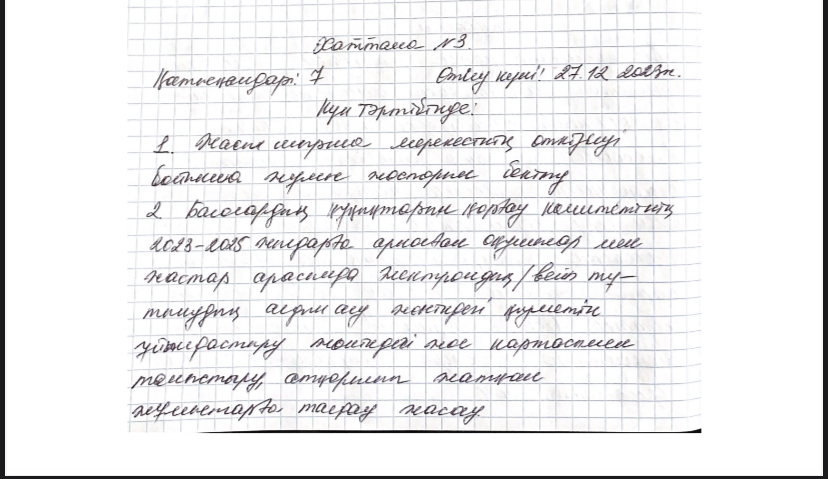 Хаттама №3.
Қатысқандар: 7 Өткізу күні: 27.12 2023ж.
Күн тәртібінде:
1. Жаңа жылға мерекесінің өткізілуі
бойынша жұмыс жоспарын бекіту
2 Балалардың құқықтарын қорғау комитетінің
2023-2025 жылдарға арналған оқушылар мен
жастар арасында электрондық/вейп тұ-
тынудың алдын алу жөніндегі қызметін
ұйымдастыру жөніндегі жол картасымен
таныстыру, атқарылып жатқан
жұмыстарға талдау жасау.